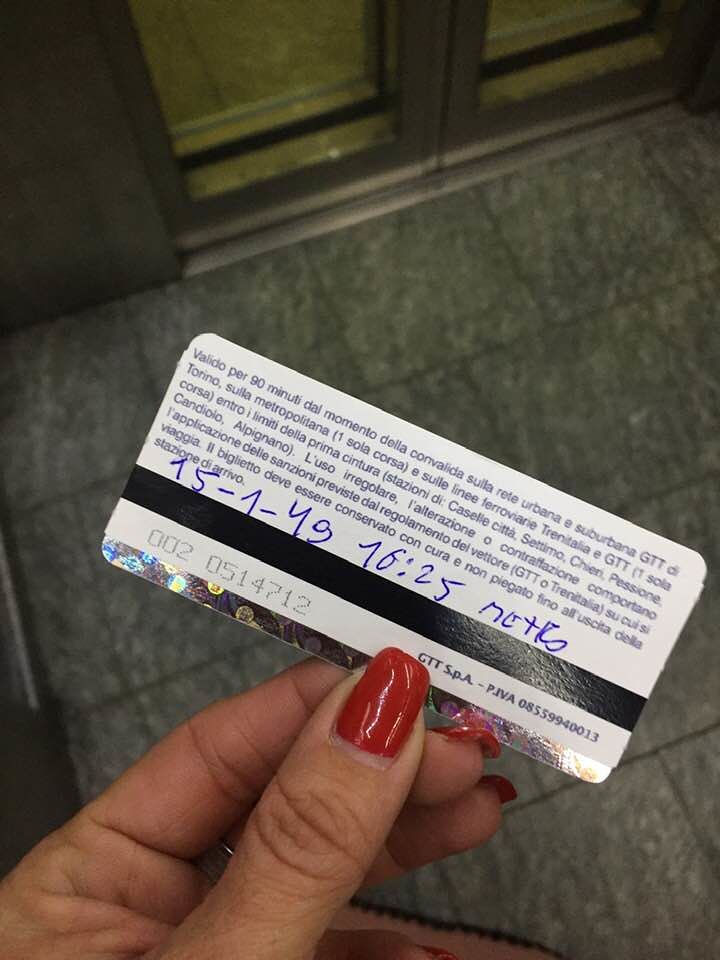 Valido per 90 minuti dal momento della convalida sulla rete urbana e suburbana GTT di
Torino, sulla metropolitana (1 sola corsa) e sulle linee ferroviarie Trenitalia e GTT (1 sola
corsa) entro i limiti della prima cintura (stazioni di: Caselle città, Settimo, Chieri, Pessione,
Candiolo, Alpignano). L'uso irregolare, l'alterazione o contraffazione comportano
l'applicazione delle sanzioni previste dal regolamento del vettore (GTT o Trenitalia) su cui si
viaggia. Il biglietto deve essere conservato con cura e non piegato fino all'uscita della
stazione di arrivo.
15-1-49 16:25 METRO
002 0514712
GTT S.p.A. - P.IVA 08559940013